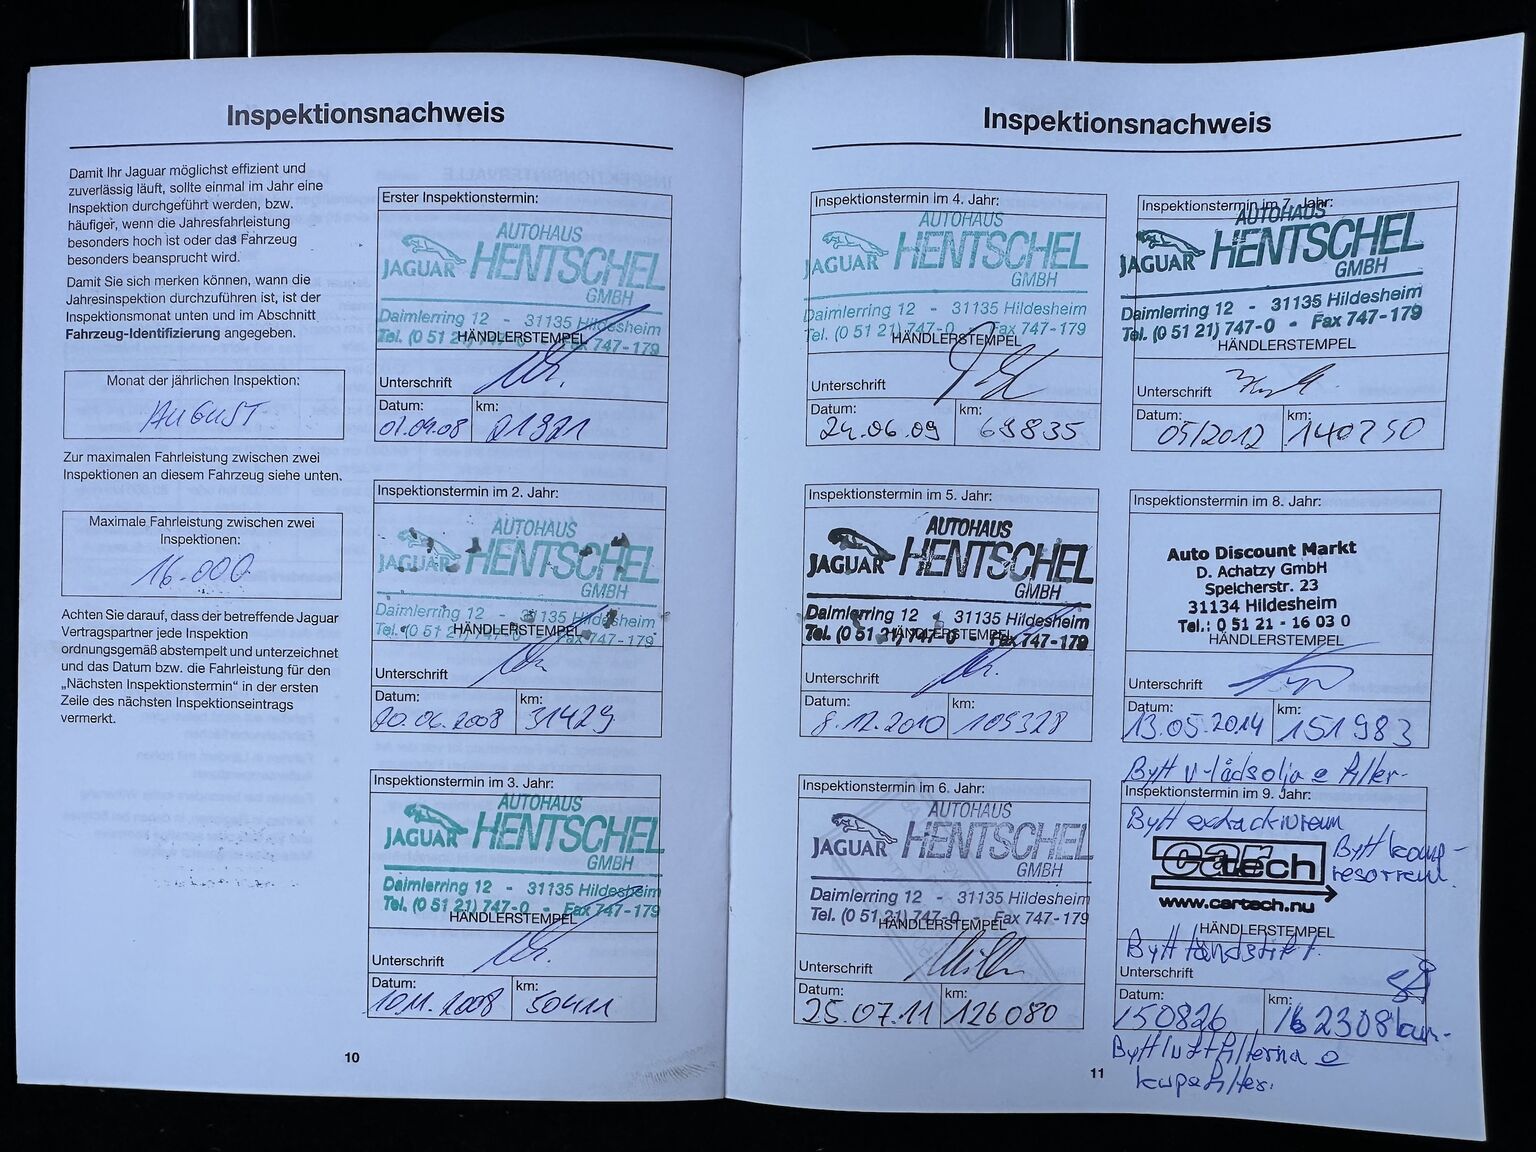 Inspektionsnachweis
Damit Ihr Jaguar möglichst effizient und
zuverlässig läuft, sollte einmal im Jahr eine
Inspektion durchgeführt werden, bzw.
häufiger, wenn die Jahresfahrleistung
besonders hoch ist oder das Fahrzeug
besonders beansprucht wird.
Damit Sie sich merken können, wann die
Jahresinspektion durchzuführen ist, ist der
Inspektionsmonat unten und im Abschnitt
Fahrzeug-Identifizierung angegeben.
Monat der jährlichen Inspektion:
AUGUST
Zur maximalen Fahrleistung zwischen zwei
Inspektionen an diesem Fahrzeug siehe unten.
Maximale Fahrleistung zwischen zwei
Inspektionen:
16.000
Achten Sie darauf, dass der betreffende Jaguar
Vertragspartner jede Inspektion
ordnungsgemäß abstempelt und unterzeichnet
und das Datum bzw. die Fahrleistung für den
„Nächsten Inspektionstermin“ in der ersten
Zeile des nächsten Inspektionseintrags
vermerkt.
Erster Inspektionstermin:
AUTOHAUS
JAGUAR HENTSCHEL
GMBH
Daimlerring 12 - 31135 Hildesheim
Tel. (0 51 21) 747-0 - Fax 747-179
HÄNDLERSTEMPEL
Unterschrift
Datum: km:
01.09.08 21921
Inspektionstermin im 2. Jahr:
AUTOHAUS
JAGUAR HENTSCHEL
GMBH
Daimlerring 12 - 31135 Hildesheim
Tel. (0 51 21) 747-0 - Fax 747-179
HÄNDLERSTEMPEL
Unterschrift
Datum: km:
20.06.2008 31429
Inspektionstermin im 3. Jahr:
AUTOHAUS
JAGUAR HENTSCHEL
GMBH
Daimlerring 12 - 31135 Hildesheim
Tel. (0 51 21) 747-0 - Fax 747-179
HÄNDLERSTEMPEL
Unterschrift
Datum: km:
10.11.2008 50411
10
Inspektionsnachweis
Inspektionstermin im 4. Jahr:
AUTOHAUS
JAGUAR HENTSCHEL
GMBH
Daimlerring 12 - 31135 Hildesheim
Tel. (0 51 21) 747-0 - Fax 747-179
HÄNDLERSTEMPEL
Unterschrift
Datum: km:
24.06.09 69835
Inspektionstermin im 5. Jahr:
AUTOHAUS
JAGUAR HENTSCHEL
GMBH
Daimlerring 12 - 31135 Hildesheim
Tel. (0 51 21) 747-0 - Fax 747-179
HÄNDLERSTEMPEL
Unterschrift
Datum: km:
8.12.2010 109328
Inspektionstermin im 6. Jahr:
AUTOHAUS
JAGUAR HENTSCHEL
GMBH
Daimlerring 12 - 31135 Hildesheim
Tel. (0 51 21) 747-0 - Fax 747-179
HÄNDLERSTEMPEL
Unterschrift
Datum: km:
25.07.11 126080
Inspektionstermin im 7. Jahr:
AUTOHAUS
JAGUAR HENTSCHEL
GMBH
Daimlerring 12 - 31135 Hildesheim
Tel. (0 51 21) 747-0 - Fax 747-179
HÄNDLERSTEMPEL
Unterschrift
Datum: km:
05/2012 140250
Inspektionstermin im 8. Jahr:
Auto Discount Markt
D. Achatzy GmbH
Speicherstr. 23
31134 Hildesheim
Tel.: 0 51 21 - 16 03 0
HÄNDLERSTEMPEL
Unterschrift
Datum: km:
13.05.2014 151983
Bytt v-lådsolja o filter-
Inspektionstermin im 9. Jahr:
Bytt extrackivrem
Bytt komp-
resorrem.
cartech
www.cartech.nu
HÄNDLERSTEMPEL
Bytt tändstift.
Unterschrift
Datum: km:
150826 162308km-
Bytt luftfilterna o
kupefilter.
11